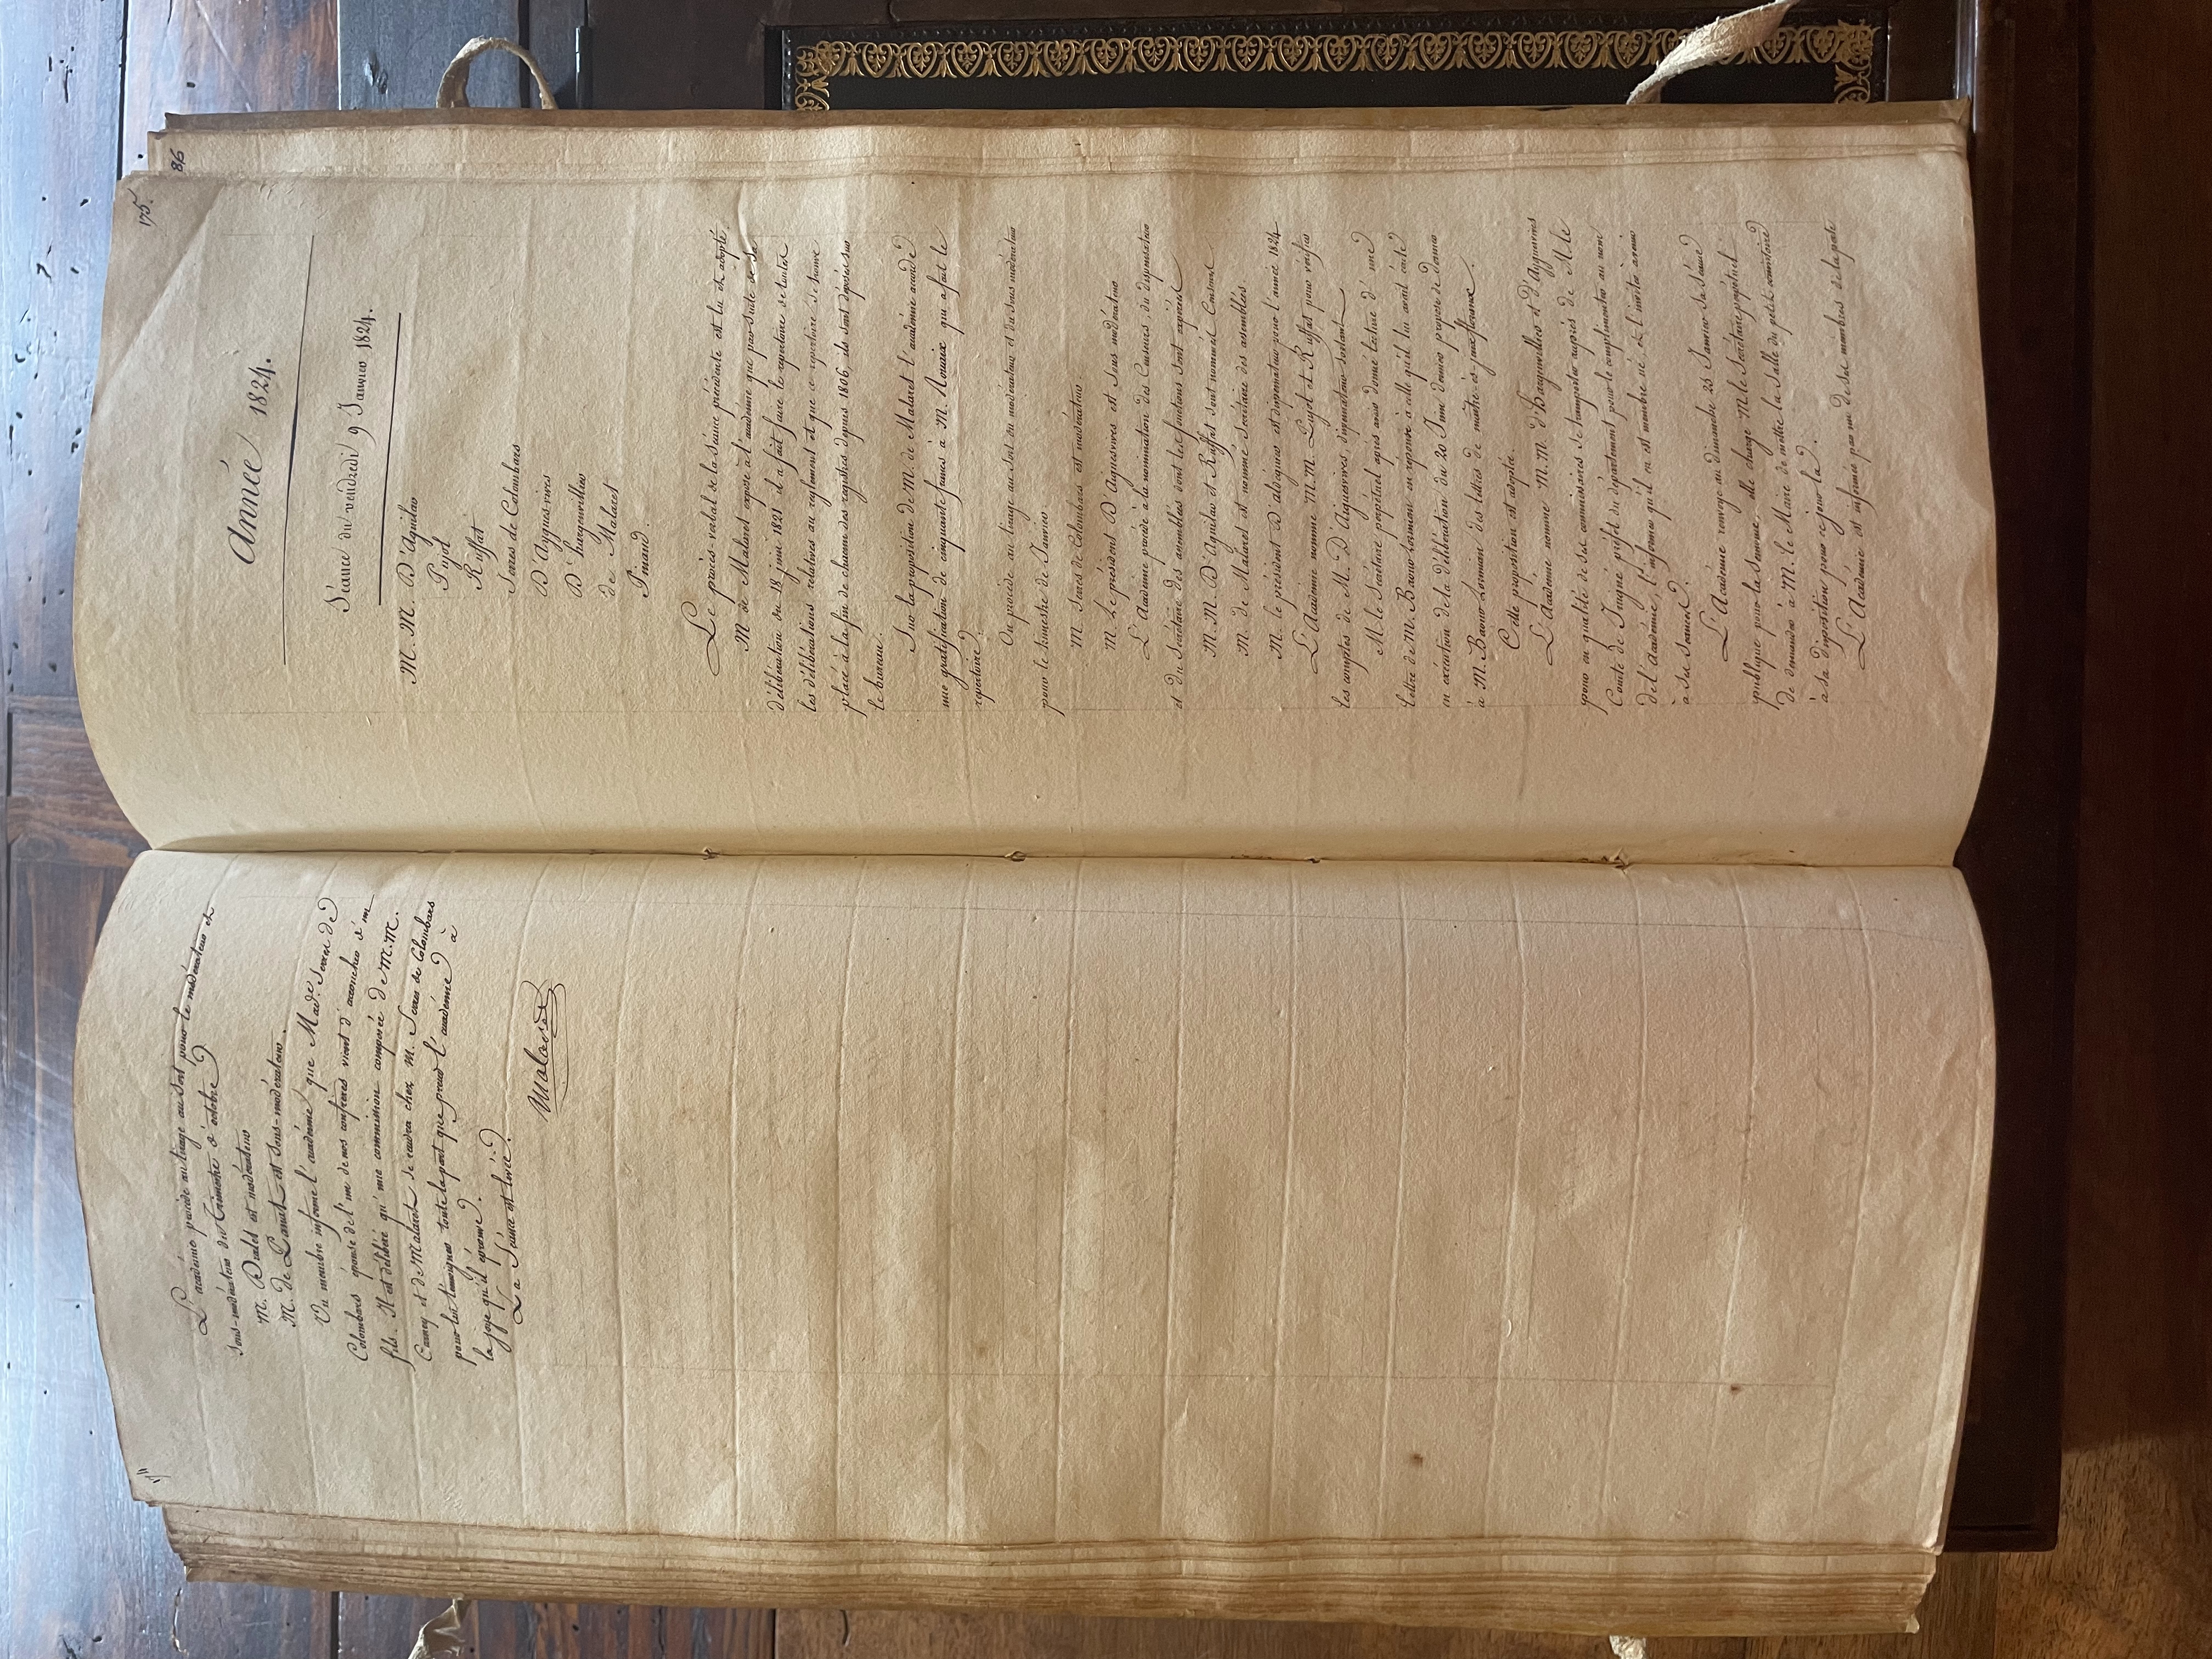 L'académie procède au tirage au sort pour le modérateur et
sous-modérateur du Trimestre d'octobre
M. Dralet est modérateur
M. de Panat est sous-modérateur.
Un membre informe l'académie que Made. Serres de
Colombars épouse de l'un de nos confrères vient d'accoucher d'un
fils. Il est délibéré qu'une commission composée de M.M.
Carney et de Malaret se rendra chez M. Serres de Colombars
pour lui témoigner toute la part que prend l'académie à
la joye qu'il éprouve.
La Séance est levée.
Malaret
175.
86
Année 1824.
Séance du vendredi 9 Janvier 1824.
M.M. D'Aguilar
Pujol
Ruffat
Serres de Colombars
D'Ayguesvives
D'hargenvillier
de Malaret
Pinaud.
Le procès-verbal de la Séance précédente est lu et adopté.
M. de Malaret expose à l'académie que par suite de sa
délibération du 18 juin 1821 il a fait faire le repertoire de toutes
les délibérations relatives au reglement et que ce repertoire se trouve
placé à la fin de chacun des registres depuis 1806, ils sont déposés sur
le bureau.
Sur la proposition de M. de Malaret l'académie accorde
une gratification de cinquante francs à M. Nouaix qui a fait le
repertoire.
On procède au tirage au sort du modérateur et du sous modérateur
pour le trimestre de Janvier
M. Serres de Colombars est modérateur.
M. Le président D'Aiguesvives est Sous modérateur
L'Académie procède à la nomination des Censeurs, du dispensateur
et du Secrétaire des assemblées dont les fonctions sont expirées
M.M. D'Aguilar et Ruffat sont nommés Censeurs.
M. de Malaret est nommé Secrétaire des assemblées
M. le président D'aldéguier est dispensateur pour l'année 1824
L'Académie nomme M.M. Pujol et Ruffat pour vérifier
les comptes de M. D'Aiguesvives, dispensateur sortant
M. le Secrétaire perpétuel après avoir donné lecture d'une
lettre de M. Baour-Lormian en réponse à celle qu'il lui avait écrite
en exécution de la délibération du 20 Juin dernier propose de donner
à M. Baour Lormian des lettres de maître-ès-jeux floraux.
Cette proposition est adoptée.
L'Académie nomme M.M. D'hargenvillier et D'Ayguesvives
pour en qualité de ses commissaires se transporter auprès de M. le
Comte de Juigné préfet du département pour le complimenter au nom
de l'académie, l'informer qu'il en est membre né, et l'inviter à venir
à ses Séances.
L'Académie renvoye au dimanche 25 Janvier sa séance
publique pour la Semonce, elle charge M. le Secrétaire perpétuel
de demander à M. le Maire de mettre la Salle du petit consistoire
à sa disposition pour ce jour là.
L'Académie est informée par un de ses membres de la perte